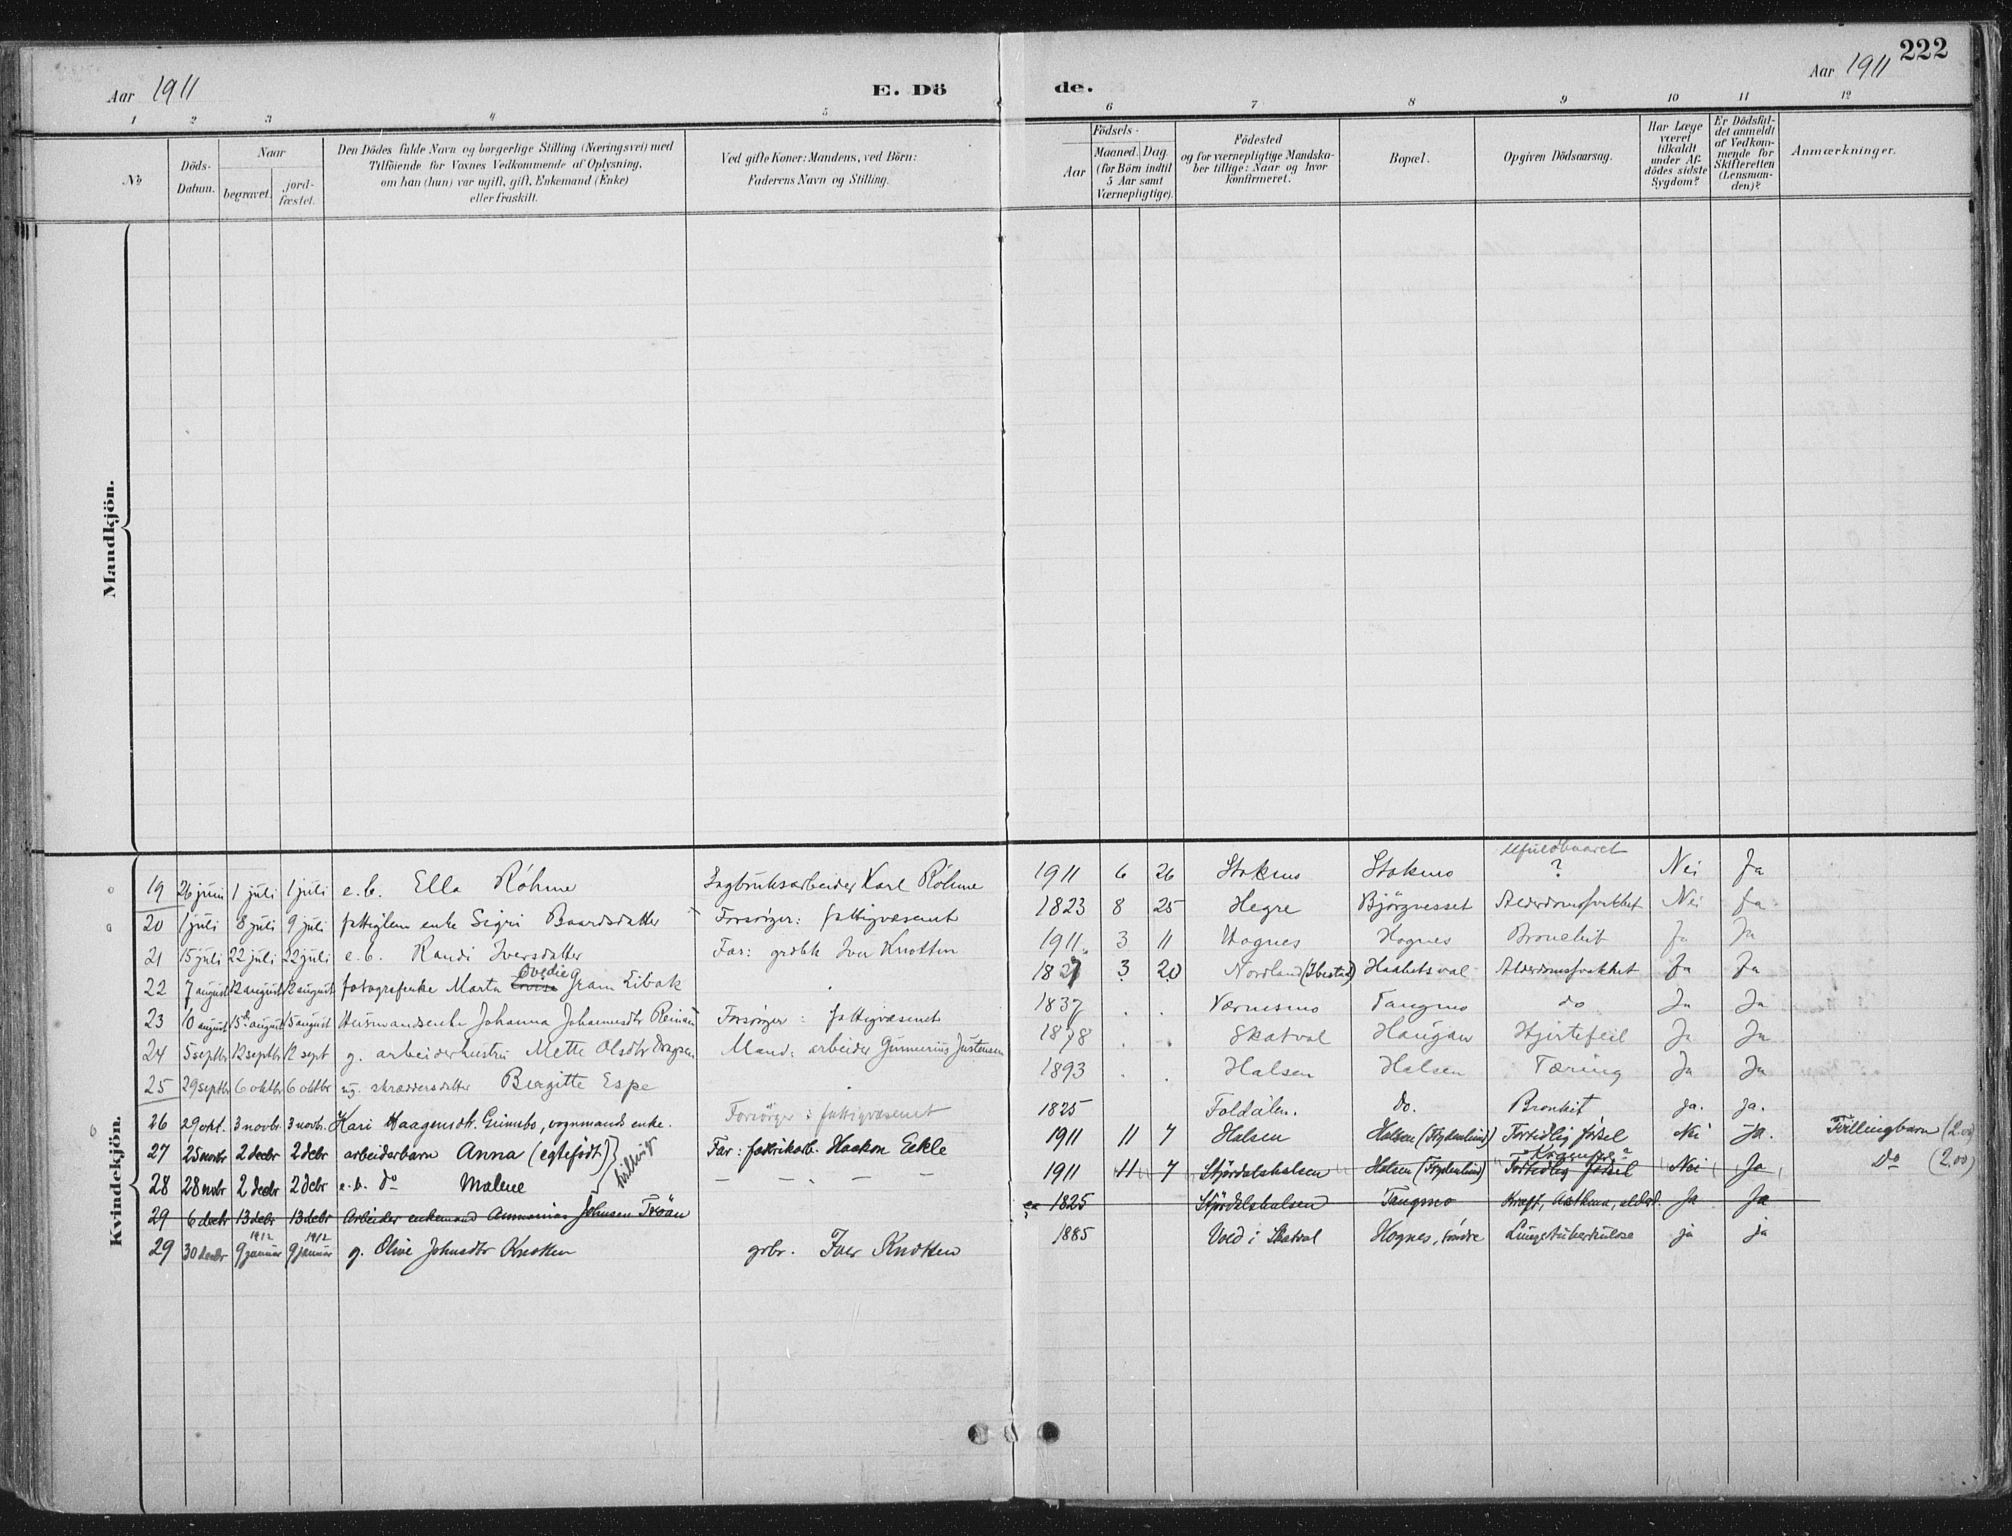 222
Aar 1911
E. Dö de.
Aar 1911
1 2 3 4 5 6 7 8 9 10 11 12
No
Döds-Datum.
Naar
begravet.
jord-fæstet.
Den Dödes fulde Navn og borgerlige Stilling (Næringsvei) med
Tilföiende for Voxnes Vedkommende af Oplysning,
om han (hun) var ugift, gift, Enkemand (Enke)
eller fraskilt.
Ved gifte Koner: Mandens, ved Börn:
Faderens Navn og Stilling.
Födsels-
Aar
Maaned. Dag.
(for Börn indtil
5 Aar samt
Værnepligtige).
Födested
og for værnepligtige Mandska-
ber tillige: Naar og hvor
konfirmeret.
Bopæl.
Opgiven Dödsaarsag.
Har Læge
været
tilkaldt
under Af-
dödes sidste
Sygdom?
Er Dödsfal-
det anmeldt
af Vedkom-
mende for
Skifteretten
(Lensman-
den)?
Anmærkninger.
Mandkjön.
Kvindekjön.
19 26 juni 1 juli 1 juli e.b. Ella Röhme Sagbruksarbeider Karl Röhme 1911 6 26 Stokmo Stokmo Ufuldbaaret ? Nei Ja
20 1 juli 8 juli 9 juli fattiglem enke Sigri Baardsdatter Forsörger: fattigvæsenet 1823 8 25 Hegre Björgnesset Alderdomssvakhet Nei Ja
21 15 juli 22 juli 22 juli e.b. Randi Iversdatter Far: grdbr. Iver Knotten 1911 3 11 Hognes Hognes Bronchit Ja Ja
22 7 august 12 august 12 august fotografenke Marta Ovedie Gram Libak 1827 3 20 Nordland (Ibestad) Alderdomssvakhet Ja Ja
23 10 august 15 august 15 august Husmandsenke Johanna Johannesdtr Reinaa Forsörger: fattigvæsenet 1837 . . Værnesmo Tangmo do Ja Ja
24 5 septbr 12 septbr 12 sept g. arbeiderhustru Mette Olsdtr Mand: arbeider Gunnerius Justensen 1878 . . Skatval Haugan Hjertefeil Ja Ja
25 29 septbr 6 oktbr 6 oktbr ug. skræddersdatter Bergitte Espe 1893 . . Halsen Halsen Tæring Ja Ja
26 29 okt. 3 novbr. 3 novbr. Kari Haagensdt. Grimsbo, vognmands enke. Forsörger: fattigvæsenet 1825 Foldalen. Do. Bronkit ja. ja.
27 25 novbr 2 decbr 2 debr arbeiderbarn Anna (egtefødt) Far: fabrikarb. Haakon Eekle 1911 11 7 Halsen Halsen (Frydenlund) Fortidlig fødsel Nei Ja. Tvillingbarn (2.00)
28 28 novbr 2 decbr 2 debr e.b. do Malene tvillinger — — . — — 1911 11 7 Stjørdalshalsen Halsen (Frydenlund) Fortidlig fødsel Krampe? Nei Ja Do (2.00)
29 6 decbr 13 debr 13 debr Arbeider enkemand Ammonius Johnsen Trøan ca 1825 Stjørdalshalsen Tangmo Kræft, Asthma, aldrd. Ja Ja
29 30 decbr 9 januar 1912 9 januar 1912 g. Olive Johnsdtr Knotten grbr. Iver Knotten 1885 Vold i Skatval Hognes, søndre Lungetuberkulose ja ja